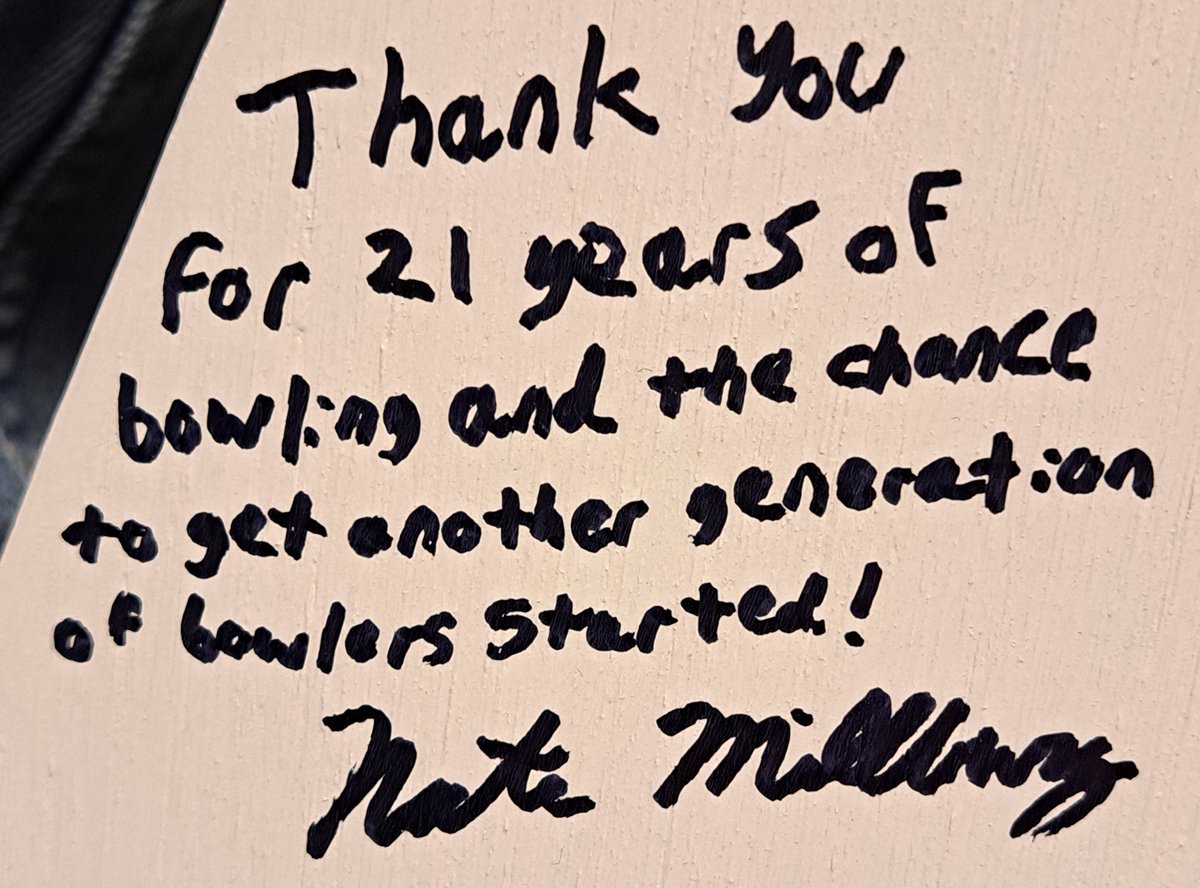 Thank You
for 21 years of
bowling and the chance
to get another generation
of bowlers started!
Nate